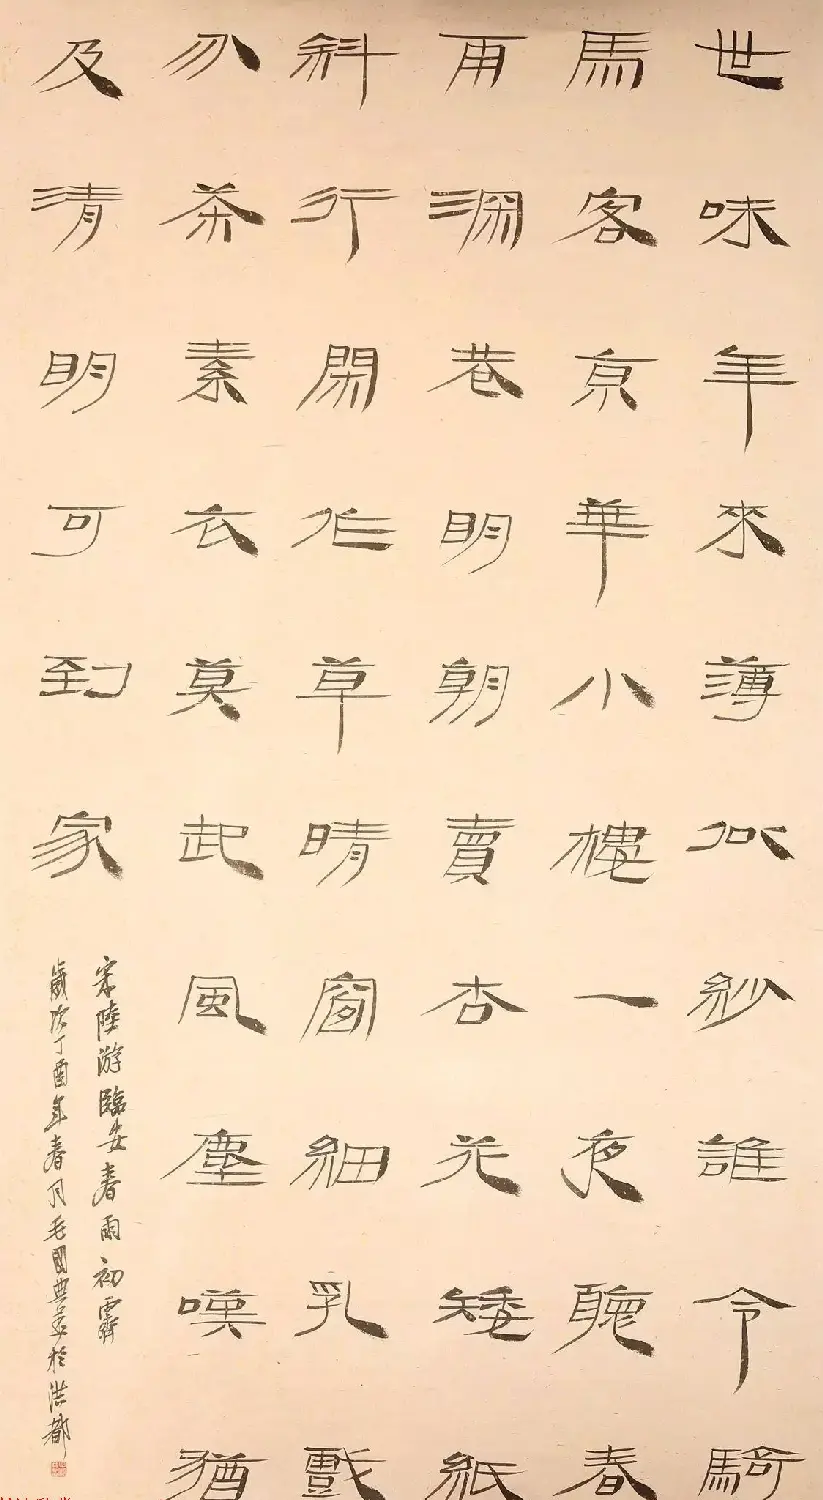 世味年來薄似紗誰令騎
馬客京華小樓一夜聽春
雨深巷明朝賣杏花矮紙
斜行閑作草晴窗細乳戲
分茶素衣莫起風塵嘆猶
及清明可到家
宋陸游臨安春雨初霽
歲次丁酉年春月毛國典書於洪都